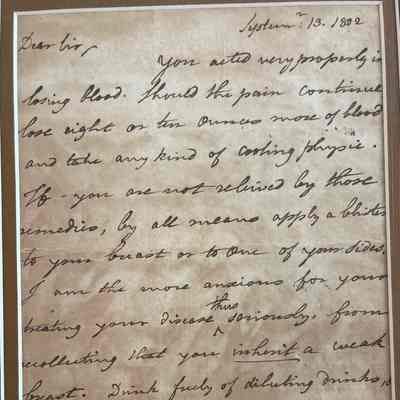 Septemr. 13. 1802
Dear Sir,
You acted very properly in
losing blood. Should the pain continue
lose eight or ten ounces more of blood
and take any kind of cooling physic.
If - you are not relieved by those
remedies, by all means apply a blister
to your breast or to one of your sides.
I am the more anxious for your
thus
treating your disease ^ seriously, from
recollecting that you inherit a weak
breast. Drink freely of diluting drinks,